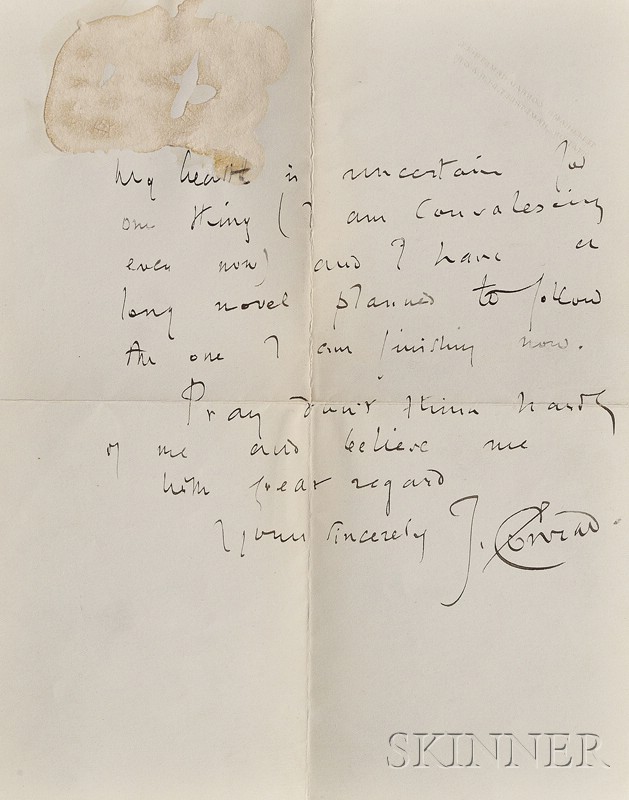 My health is uncertain for
one thing (I am convalescing
even now) and I have a
long novel planned to follow
the one I am finishing now.
Pray don't think hardly
of me and believe me
with great regard
Yours sincerely J. Conrad.
SKINNER